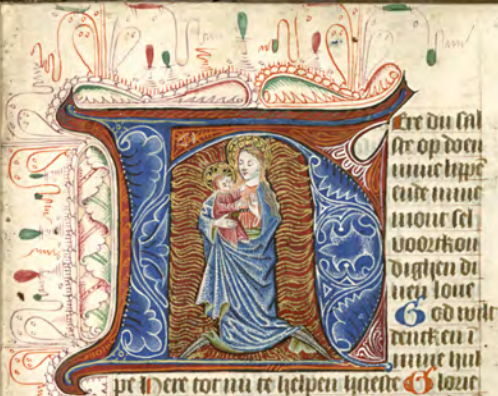 Ere du sal
ste op doen
mine lippē
ende mine
mont sel
voortkon
dighen di
nen loue
God wilt
dencken i
mine hul
pe Here tot mi te helpen haeste Glorie